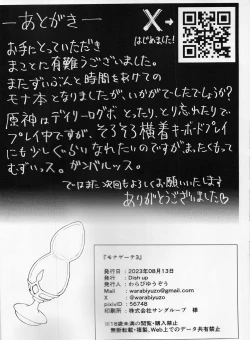 ―あとがき―
X→
はじめました!
お手にとっていただき
まことに有難うございました。
またずいぶんと時間をあけての
モナ本となりましたが、いかがでしたでしょうか?
原神はデイリーログボとったり、とり忘れたりで
プレイ中ですが、そろそろ横着キーボードプレイ
にも少しぐらいなれたいのですがまぁたくもって
むずいっス。ガンバルッス。
ではまた次回もよろしくお願いいたします
ありがとうございました♡
『モナデーテ3』
発行日:2023年08月13日
発行:Dish up
発行人:わらびゆうぞう
Mail:warabiyuzo@gmail.com
X:@warabiyuzo
pixivID:56748
印刷所:株式会社サングループ 様
※18歳未満の閲覧・購入禁止
無断転載・複製、Web上でのデータ共有禁止